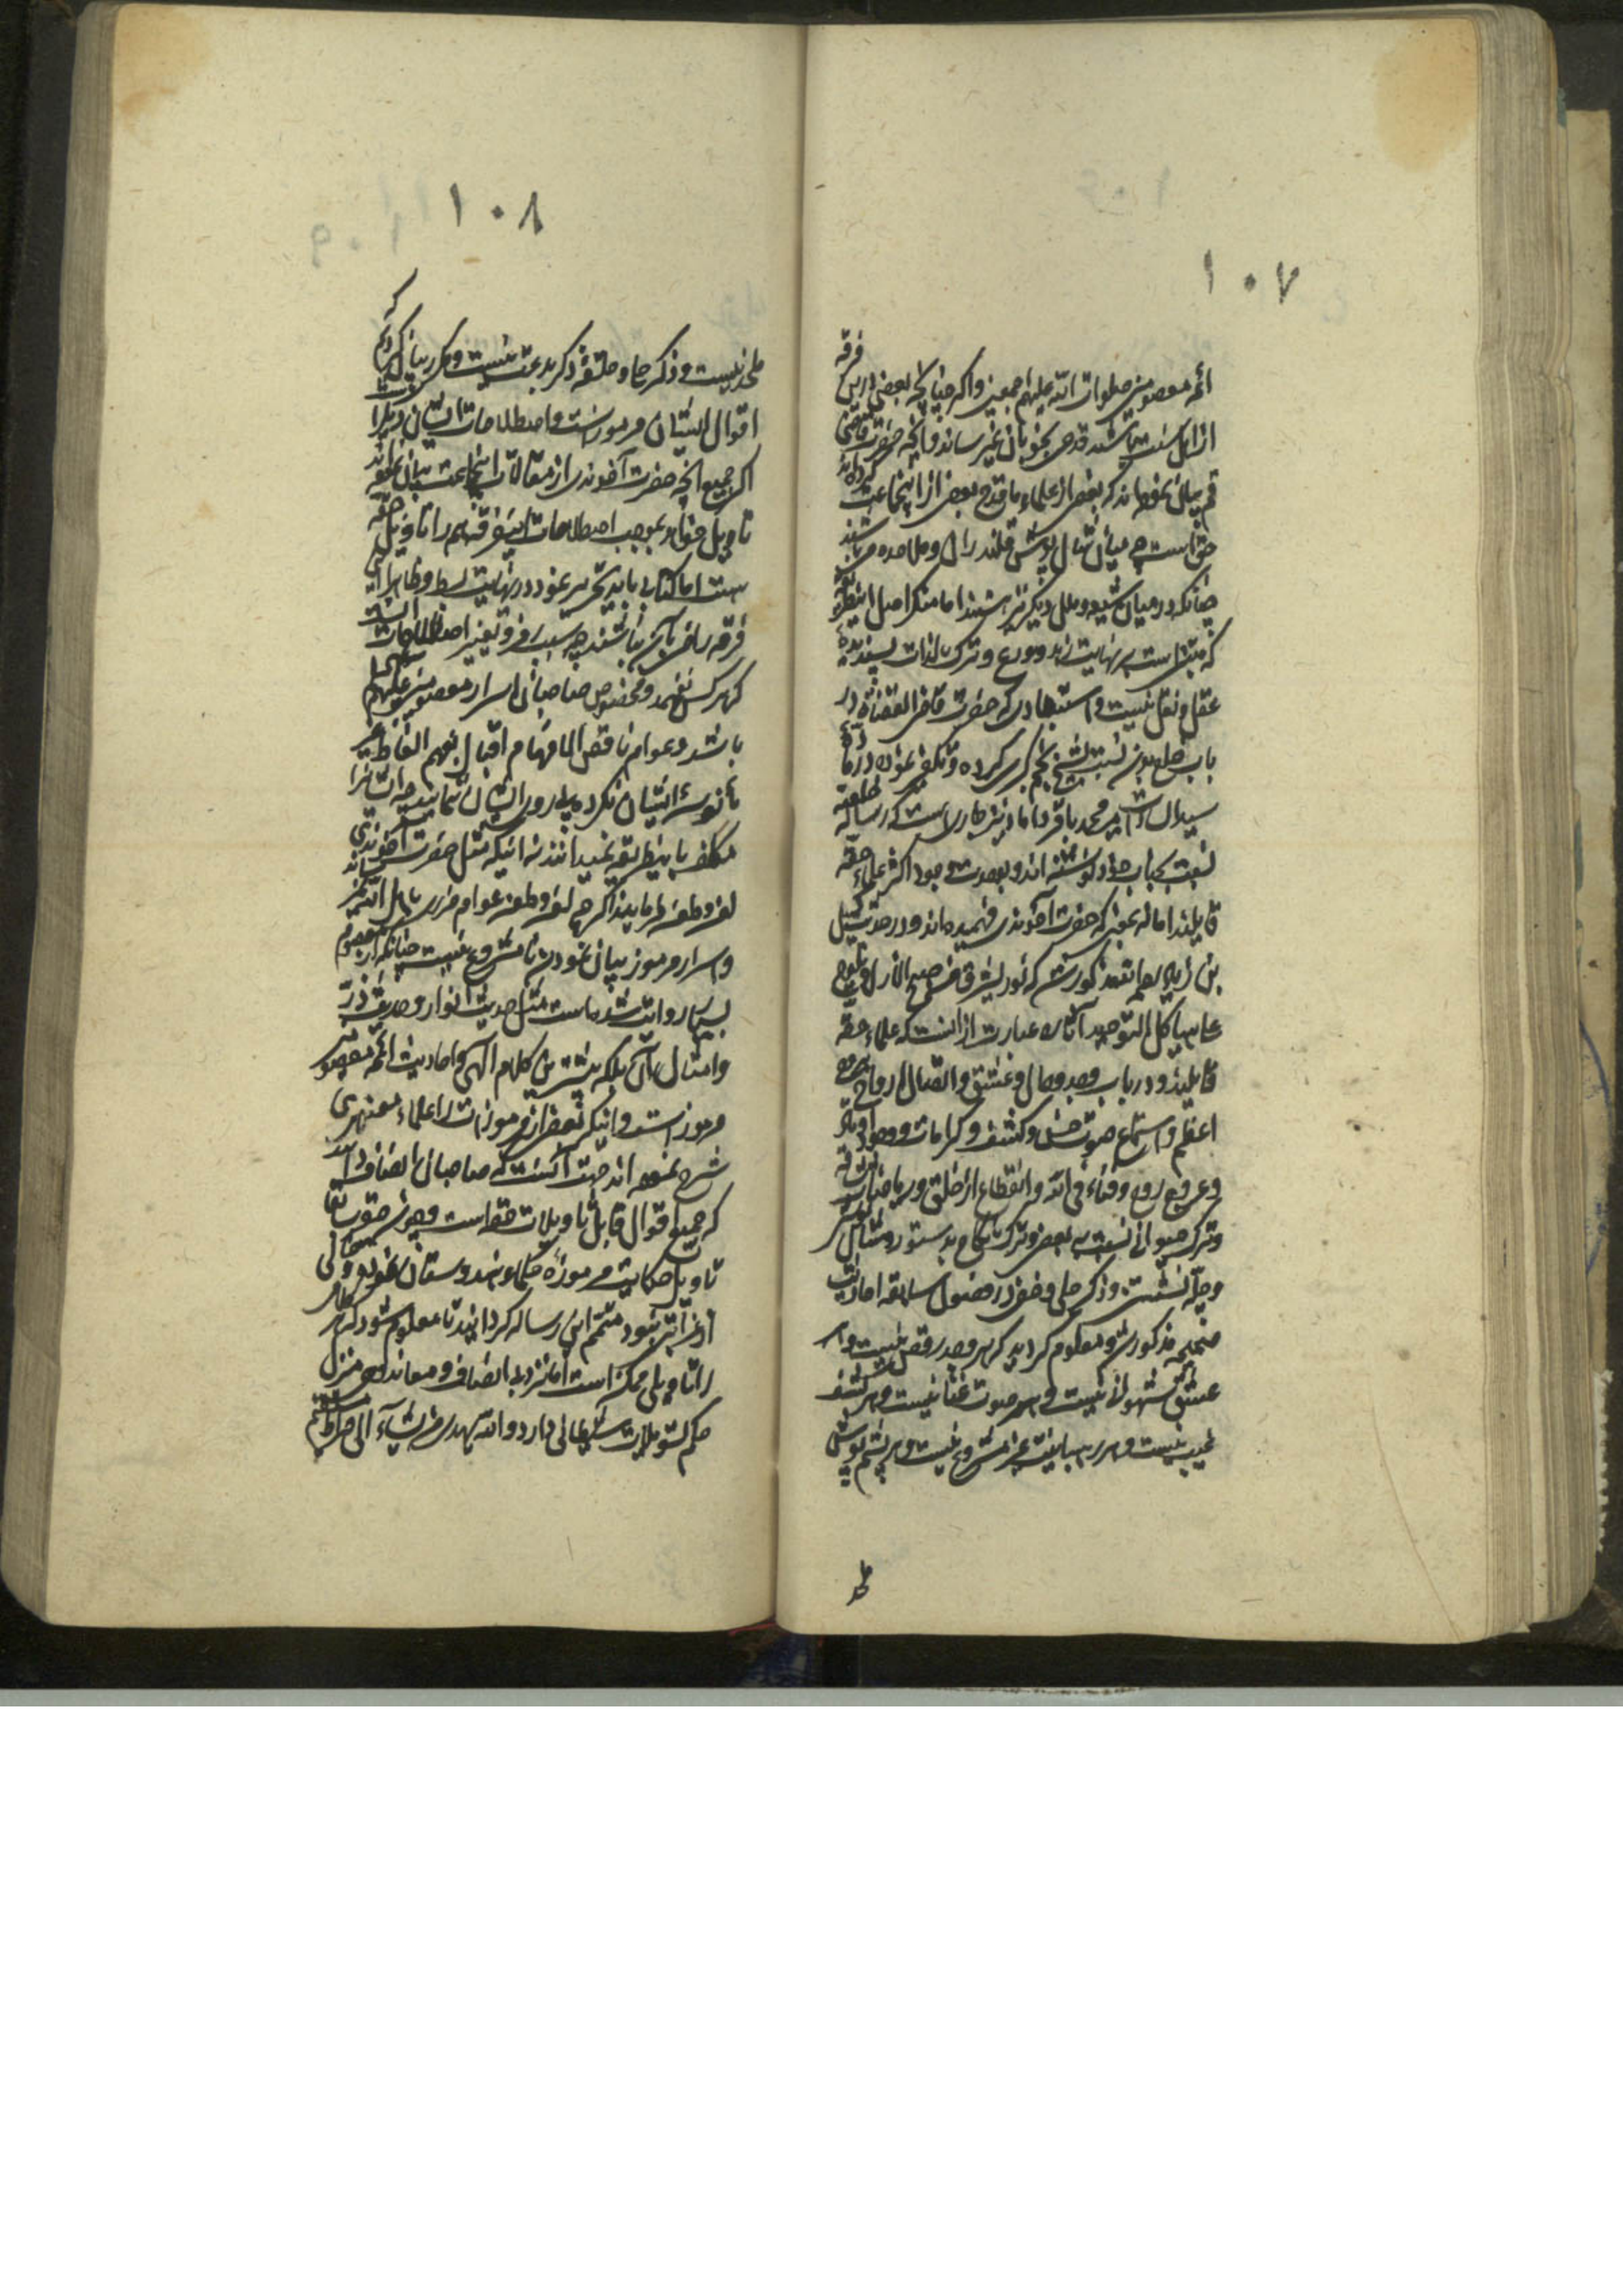 ۱۰۷
ائمه معصومین صلوات الله علیهم اجمعین واکر چنانچه بعضی درین فرقه
از اهل سنت باشند قدحی بخوبان نمیرساند وآنچه حضرت قاضی
قم بیان نموده‌اند که بعضی از علماء ما قدح بعضی از اینجماعت کرده‌اند
حق است چه میان شال پوشی قلندران وملاحده میباشند
چنانکه در میان شیعه وملل دیکر نیز هستند اما منکر اصل اینطریقه
که مبتنی است بر نهایت زهد وورع وترک لذات پسندیده
عقل ونقل نیست واستبعادی که حضرت قاضی القضاة در
باب صلح بودن نسبت بشیخ نجم کبری کرده وتکفیر نموده در
سید محمد باقر داماد نیز جاریست که رساله خلعیه
نسبت بجناب خود نوشته‌اند وبوحدت وجود اکثر علماء حقه
قایلند اما نه بمعنی که حضرت آخوندی فهمیده‌اند ودر حدیث کمیل
بن زیاد بعلم مذکور شد که نور یشرق من صبح الازل فیلوح
علی هیاکل التوحید آثاره عبارت از آنست که علماء حقه
قایلند ودر باب وجد وحال وعشق واتصال ارواح بروح
اعظم واستماع صوت حسن وکشف وکرامات ووجود اوتاد
وعروج روح وفناء فی الله وانقطاع از خلق وریاضات
وترک حیوانی نسبت به بعضی وترک نکاح بدستور ومثال
وچله نشستن وذکر جلی وخفی در فصول سابقه احادیث
صحیحه مذکور شد ومعلوم کردید که هر وجد رقص نیست وهر
عشق شهوانی نیست وهر صوت غنا نیست وهر کشف
غیب نیست وهر رهبانیت غیر مشروع نیست وهر پشم پوشی
ملحد
۱۰۸
ملحد نیست وذکر جلی وحلقه ذکر بدعت نیست ومکرر بیان کردیم که
اقوال ایشان مرموز است واصطلاحات ایشان دیکر
اکر جمیع آنچه حضرت آخوندی از مقالات اینجماعت بیان نموده‌اند
تاویل خواهد بموجب اصطلاحات اینفرقه همه را تاویل حقه
هست اما کتابی باید تحریر نمود در نهایت بسط وظاهرا این
فرقه راضی بآن نباشند چه سبب رمز وتغییر اصطلاحات آنست
که هر کس نفهمد ومخصوص صاحبان اسرار معصومین علیهم السلام
باشد وعوام ناقص الافهام اقبال بفهم الفاظ غیر
مأنوسهٔ ایشان نکرده پیروی ایشان ننمایند چه ایشانرا
مکلف باینطریقه نمیدانند نه اینکه مثل حضرت آخوندی
لعن وطعن فرمایند اکر چه لعن وطعن عوام ضرر باهل الله نمیرساند
واسرار ومرموز بیان نمودن نامشروع نیست چنانکه از معصوم
بسیار روایت شده است مثل حدیث انوار وحدیث ذر
وامثال آن بلکه بیشترین کلام الهی واحادیث ائمه معصومین
مرموز است واینکه بعضی از مرموزات را علماء
شرح نموده‌اند جهت آنست که صاحبان انصاف دانند
که جمیع اقوال قابل تاویلات حقه است وچون
تاویل حکایت مرموزهٔ حکماء هندوستان نموده
متمم این رساله کردانید تا معلوم شود که هر
را تاویلی ممکن است اما نزد اهل انصاف ومعاند را منزل
حکم تسویلات شیطانی دارد والله یهدی من یشاء الی صراط مستقیم